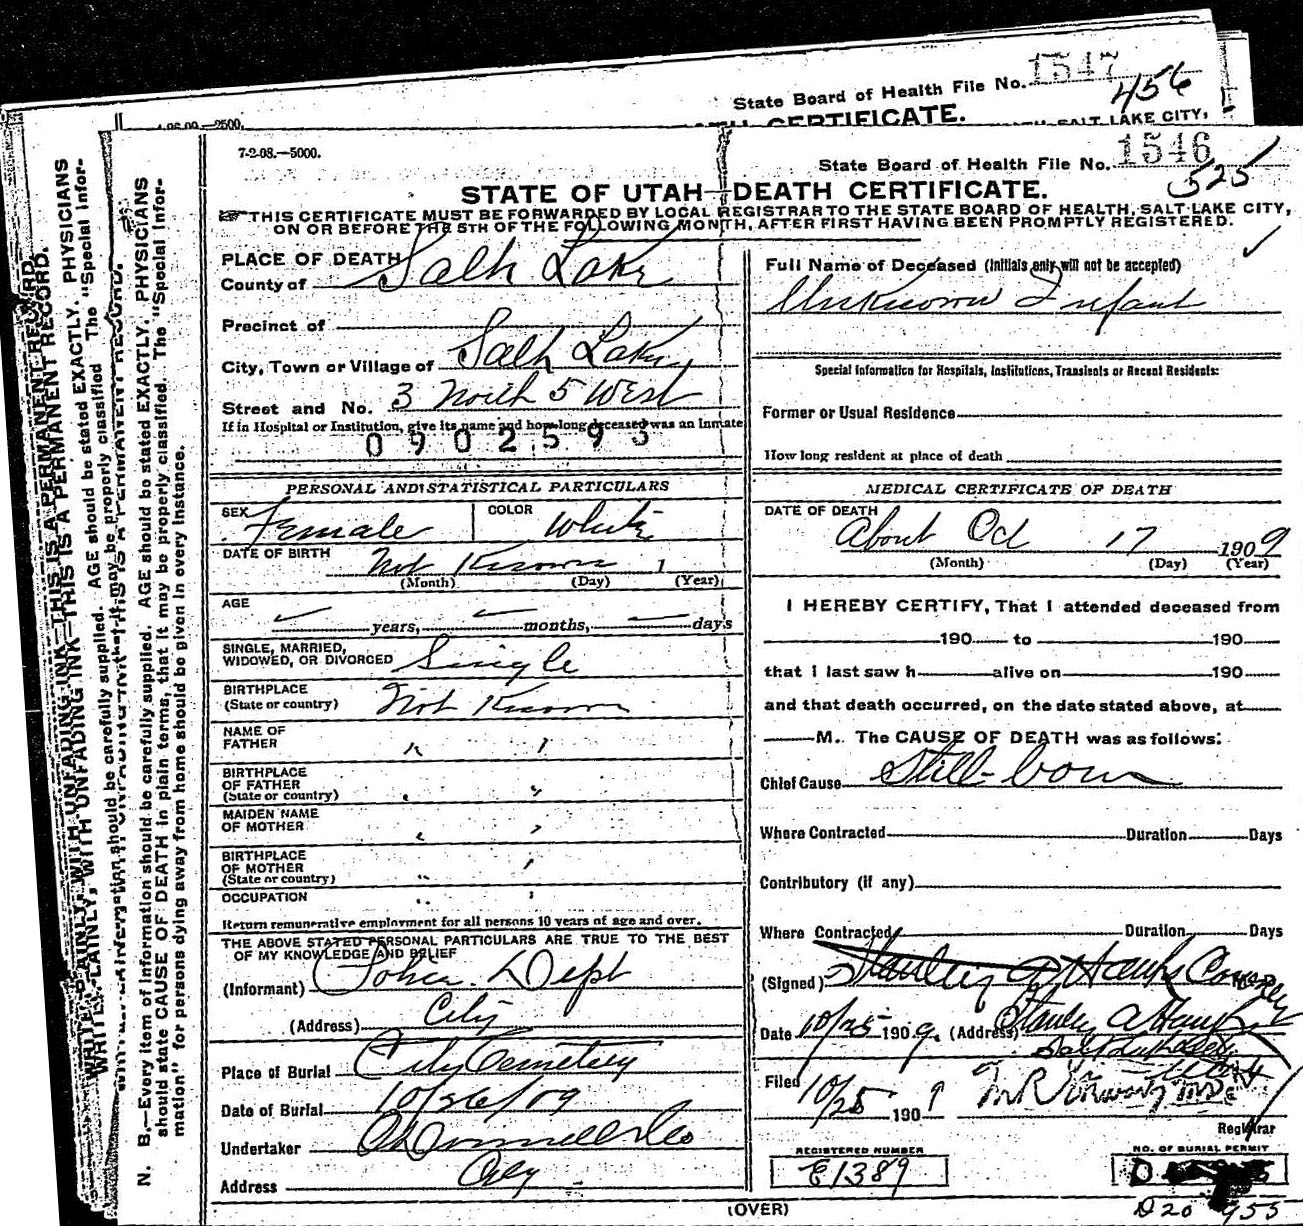 State Board of Health File No. 1547
456
4-26-09.—2500.
7-2-08.—5000.
State Board of Health File No. 1546
525
STATE OF UTAH—DEATH CERTIFICATE.
THIS CERTIFICATE MUST BE FORWARDED BY LOCAL REGISTRAR TO THE STATE BOARD OF HEALTH, SALT LAKE CITY,
ON OR BEFORE THE 5TH OF THE FOLLOWING MONTH, AFTER FIRST HAVING BEEN PROMPTLY REGISTERED.
PLACE OF DEATH
County of Salt Lake
Precinct of
City, Town or Village of Salt Lake
Street and No. 3 North 5 West
If in Hospital or Institution, give its name and how long deceased was an Inmate
0902593
PERSONAL AND STATISTICAL PARTICULARS
SEX Female COLOR White
DATE OF BIRTH Not Known 1
(Month) (Day) (Year)
AGE
years, months, days
SINGLE, MARRIED,
WIDOWED, OR DIVORCED Single
BIRTHPLACE
(State or country) Not Known
NAME OF
FATHER " "
BIRTHPLACE
OF FATHER
(State or country) " "
MAIDEN NAME
OF MOTHER " "
BIRTHPLACE
OF MOTHER
(State or country) " "
OCCUPATION " "
Return remunerative employment for all persons 10 years of age and over.
THE ABOVE STATED PERSONAL PARTICULARS ARE TRUE TO THE BEST
OF MY KNOWLEDGE AND BELIEF
(Informant) Police Dept
(Address) City
Place of Burial City Cemetery
Date of Burial 10/26/09
Undertaker
Address City
Full Name of Deceased (Initials only will not be accepted)
Unknown Infant
Special Information for Hospitals, Institutions, Transients or Recent Residents:
Former or Usual Residence
How long resident at place of death
MEDICAL CERTIFICATE OF DEATH
DATE OF DEATH
About Oct 17 1909
(Month) (Day) (Year)
I HEREBY CERTIFY, That I attended deceased from
190 to 190
that I last saw h alive on 190
and that death occurred, on the date stated above, at
M. The CAUSE OF DEATH was as follows:
Chief Cause Still-born
Where Contracted Duration Days
Contributory (if any)
Where Contracted Duration Days
(Signed) Stanley A Hanks
Date 10/25 1909. (Address) Stanley A Hanks
Filed 10/25 1909
Registrar
REGISTERED NUMBER
E1389
NO. OF BURIAL PERMIT
D20 955
(OVER)
N. B.—Every item of information should be carefully supplied. AGE should be stated EXACTLY. PHYSICIANS
should state CAUSE OF DEATH in plain terms, that it may be properly classified. The "Special Infor-
mation" for persons dying away from home should be given in every instance.